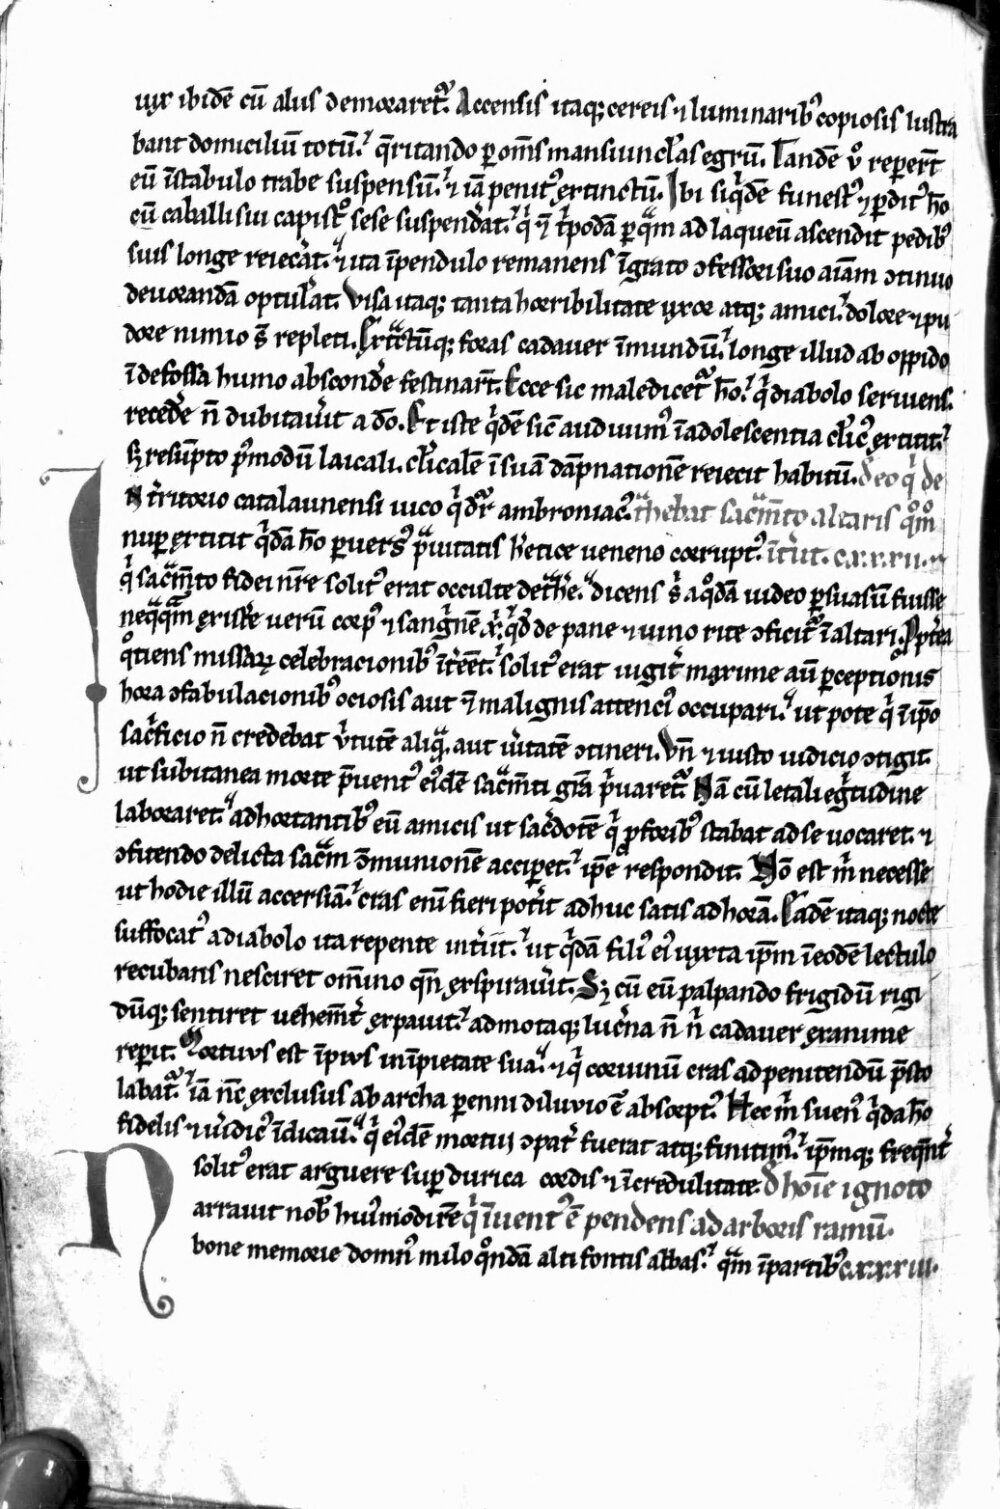 uix ibidē cū aliis demoraretᷣ. Accensis itaq; cereis ⁊ luminarib᷒ copiosis lustra
bant domiciliū totū. q̄ritando ꝑ om̄s mansiunc̄las egrū. Tandē v̊ reperēt
eū ī stabulo trabe suspensū. ⁊ iā penit᷒ extinctū. Ibi siqͥdē funest᷒ ⁊ ꝑdit᷒ hō
cū caballi sui capistͦ sese suspendāt. qͥ ⁊ tͥpodā ꝑ qͣm ad laqueū ascendit pedib᷒
suis longe reiecāt. ⁊ ita īpendulo remanens īgrato ↄfessori suo aīam ↄtinuo
deuorandā optulāt. Visa itaq; tanta horribilitate uxor atq; amici. dolore ⁊ pu
dore nimio s̄t repleti. Extͣctūq; foras cadauer īmundū. longe illud ab oppido
ī defossa humo absconde᷒ festinarēt. Ecce sic maledicetᷣ hō. qͥ diabolo seruiens.
recede᷒ n̄ dubitauīt a dō. Et iste qͥdē sic audiuim᷒ ī adolescentia cl̄ic᷒ extitit.
sꝫ resūpto pͦ modū laicali. cl̄icalē ī suā dāpnationē reiecit habitū. de eo qͥ de
N tͥritorio catalaunensi uico qͥ dᷣ ambroniac᷒. tͣhebat sacͣm̄to altaris qͦm̊
nuper extitit qͥdā hō ꝑuers᷒ pͣuitatis hͤetice ueneno corrupt᷒. īteͥit. c.x.x.x.ii.
qͥ sacͣm̄to fidei nr̄e solit᷒ erat occulte detͣhe᷒. dicens s̄ aqͦdā uideo ꝑsuasū fuisse
neqͣqͣm existe᷒ uerū corp᷒ ⁊ sangͥnē xͥ. qͦd de pane ⁊ uino rite ↄficitᷣ ī altari. Ppt̄ea
qͦtiens missaꝝ celebracionib᷒ īteēet. solit᷒ erat iugitͥ maxime aū ꝑceptionis
hora ↄfabulacionib᷒ ociosis aut ⁊ malignis attenci᷒ occupari. ut pote qͥ ī ip̄o
sacͥficio n̄ credebat vͥtutē aliqͣ. aut uͥtatē ↄtineri. Vn̄ ⁊ iusto iudicio ↄtigit.
ut subitanea morte pͣuent᷒ ei᷒dē sacͣm̄ti gr̄a pͥuaretᷣ. Nā cū letali egͥtudine
laboraret. adhortantib᷒ eū amicis ut sacͤdotē qͥ p̄ forib᷒ stabat ad se uocaret. ⁊
ↄfitendo delicta sacͣm ↄmunionē acciꝑet. ip̄e respondit. Nō est mͥ necesse
ut hodie illū accersiā. cras enī fieri potͥit adhuc satis ad horā. Eadē itaq; nocte
suffocat᷒ a diabolo ita repente intͥiit. ut qͥdā fili᷒ ei᷒ iuxta ip̄m ī eodē lectulo
recubans nesciret om̄ino qn̄ expirauīt. Sꝫ cū eū palpando frigidū rigi
dūq; sentiret uehem̄tͥ expauit. admotaq; lucͤna n̄ nͥ cadauer exanime
reꝑit. Mortuus est īpius in īpietate sua. ⁊ qͥ coruinū cras ad penitendū pͣsto
labatᷣ. iā nc̄ exclusus ab archa ꝑenni diluuio ē absorpt᷒. Hec mͥ s̄uen᷒ qͥdā hō
fidelis ⁊ uͥdic᷒ īdicauit. qͥ ei᷒dē mortui ↄpatͥ fuerat atq; finitim᷒. ip̄mq; freqn̄tͥ
solit᷒ erat arguere suꝑ duricia cordis ⁊ īcredulitate. d̄ hoīe ignoto
Narrauit nob᷒ hui᷒modi rē qͥ īuent᷒ ē pendens ad arboris ramū.
bone memorie domn᷒ milo qͦndā alti fontis abbas. qͣm ī partib᷒ c.x.x.x.iii.